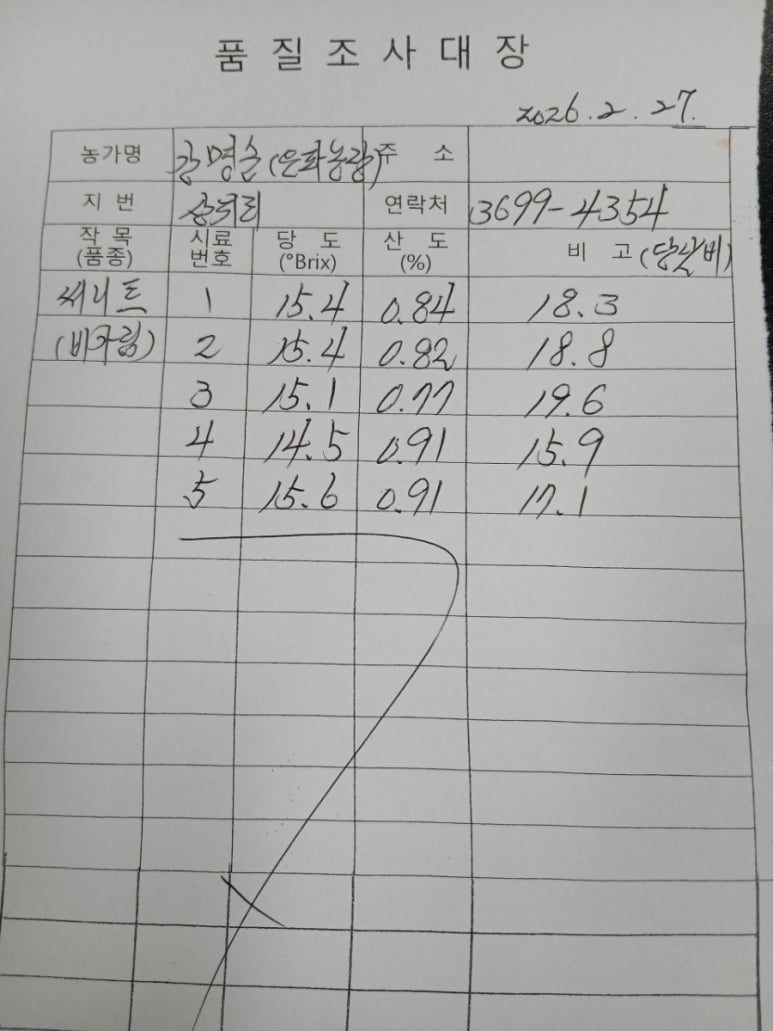 품 질 조 사 대 장
2026. 2. 27.
농가명 강명순(은화농장) 주 소
지 번 상예리 연락처 3699-4354
작 목 (품종) 시료 번호 당 도 (°Brix) 산 도 (%) 비 고 (당산비)
써니트 1 15.4 0.84 18.3
(비가림) 2 15.4 0.82 18.8
3 15.1 0.77 19.6
4 14.5 0.91 15.9
5 15.6 0.91 17.1